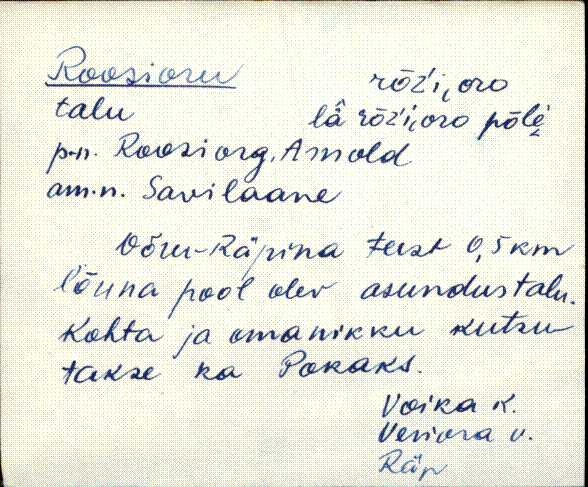 Roosioru
rōź́i͔oro
talu
lǟ rōź́i͔oro pōlè̬
p.n. Roosiorg, Arnold
am.n. Savilaane
Võru-Räpina teest 0,5 km
lõuna pool olev asundustalu.
Kohta ja omanikku kutsu-
takse ka Pokaks.
Voika k.
Veriora v.
Räp